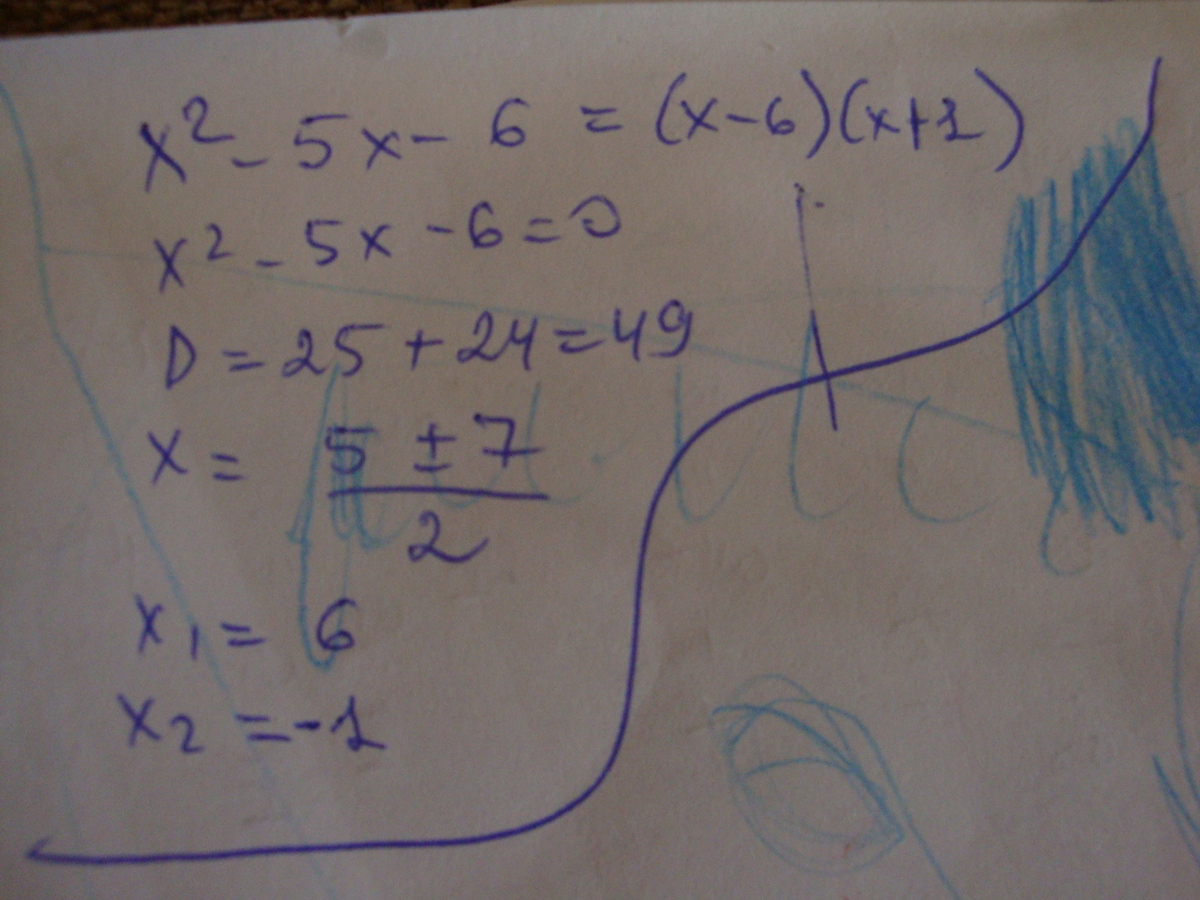 x² - 5x - 6 = (x-6)(x+1)
x² - 5x - 6 = 0
D = 25 + 24 = 49
x = (5 ± 7)/2
x₁ = 6
x₂ = -1